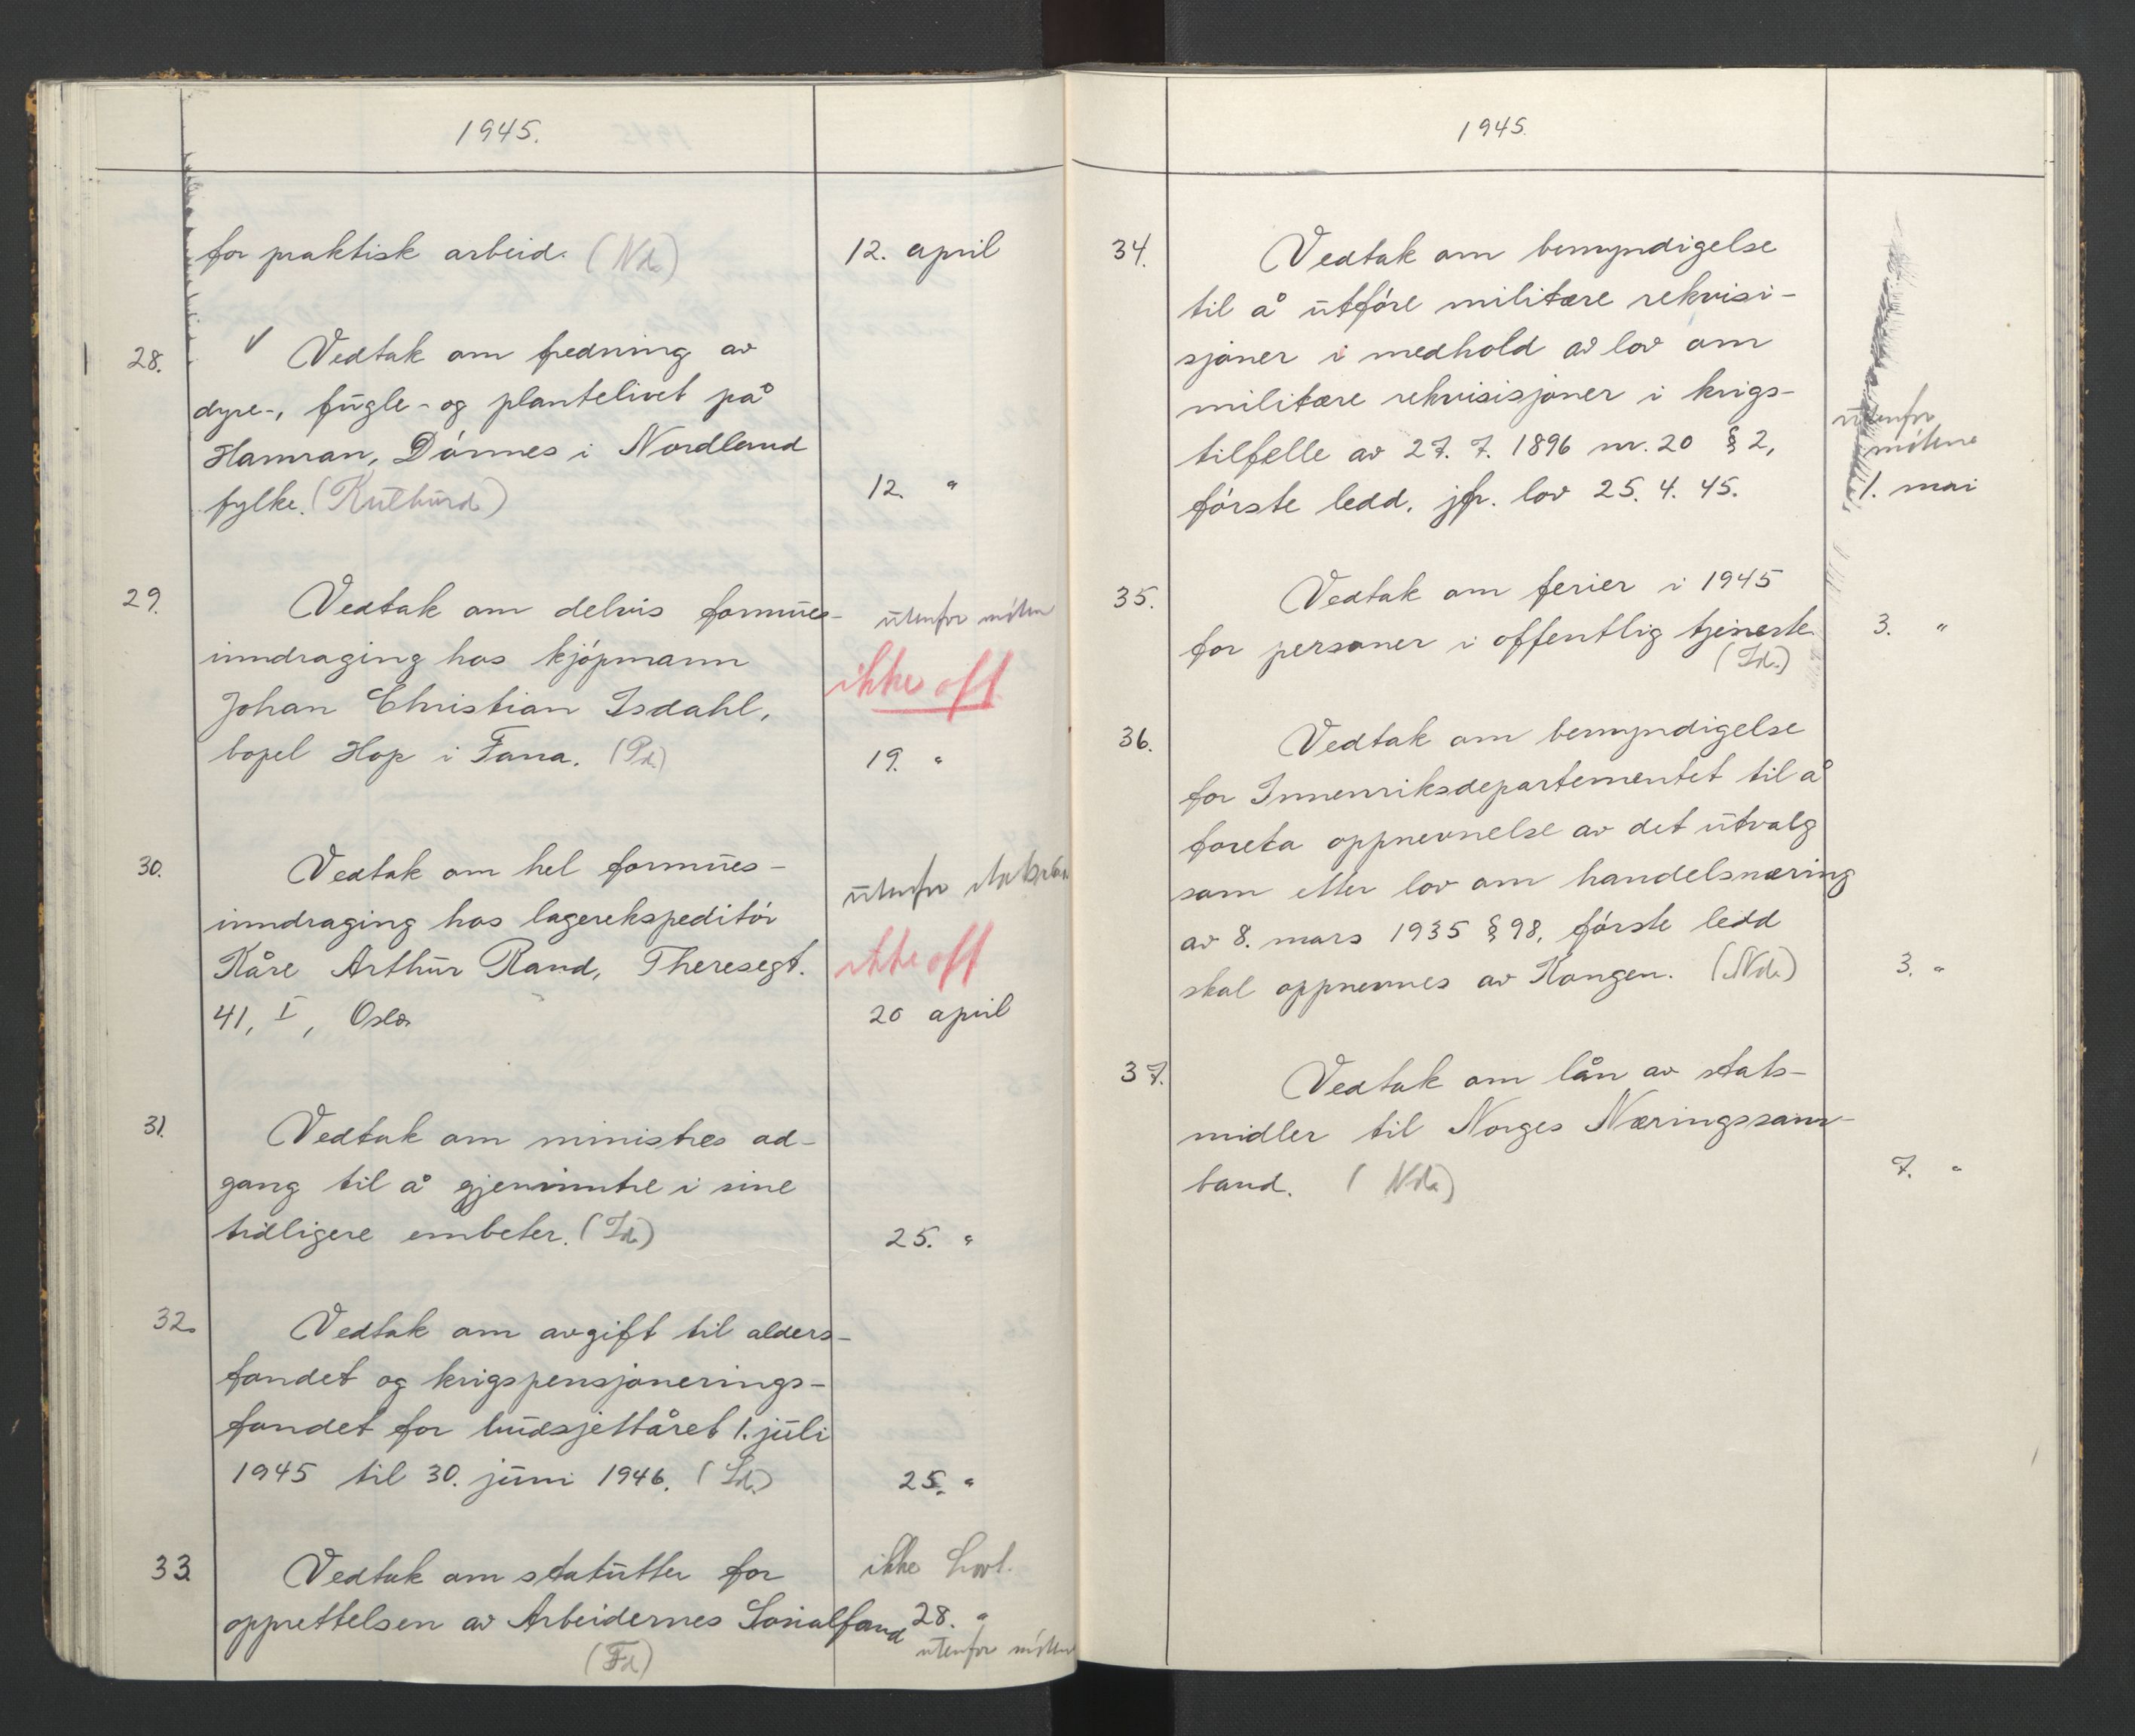 1945.
for praktisk arbeid. (Nd.) 12. april
28. Vedtak om fredning av
dyre-, fugle- og plantelivet på
Hamran, Dónnes i Nordland
fylke. (Kulturd) 12. "
29. Vedtak om delvis formues- utenfor móten
inndraging hos kjópmann ikke off
Johan Christian Isdahl,
bopel Hop i Fana. (Pd.) 19. "
30. Vedtak om hel formues- utenfor
inndraging hos lagerekspeditór
Kåre Arthur Rand, Theresegt. ikke off
41, I, Oslo 20 april
31. Vedtak om ministres ad-
gang til å gjeninntre i sine
tidligere embeter. (Id.) 25. "
32. Vedtak om avgift til alders-
fondet og krigspensjonerings-
fondet for budsjettåret 1. juli
1945 til 30. juni 1946. (Sd.) 25. "
33. Vedtak om statutter for ikke
opprettelsen av Arbeidernes Sosialfond 28. "
(Fd) utenfor móten
1945.
34. Vedtak om bemyndigelse
til å utfóre militære rekvisi-
sjoner i medhold av lov om
militære rekvisisjoner i krigs- utenfor
tilfelle av 27. 7. 1896 nr. 20 § 2, mótene
fórste ledd, jfr. lov 25. 4. 45. 1. mai
35. Vedtak om ferier i 1945
for personer i offentlig tjeneste. 3. "
(Id.)
36. Vedtak om bemyndigelse
for Innenriksdepartementet til å
foreta oppnevnelse av det utvalg
som etter lov om handelsnæring
av 8. mars 1935 § 98, fórste ledd
skal oppnevnes av Kongen. (Nd.) 3. "
37. Vedtak om lån av stats-
midler til Norges Næringssam-
band. (Nd.) 7. "